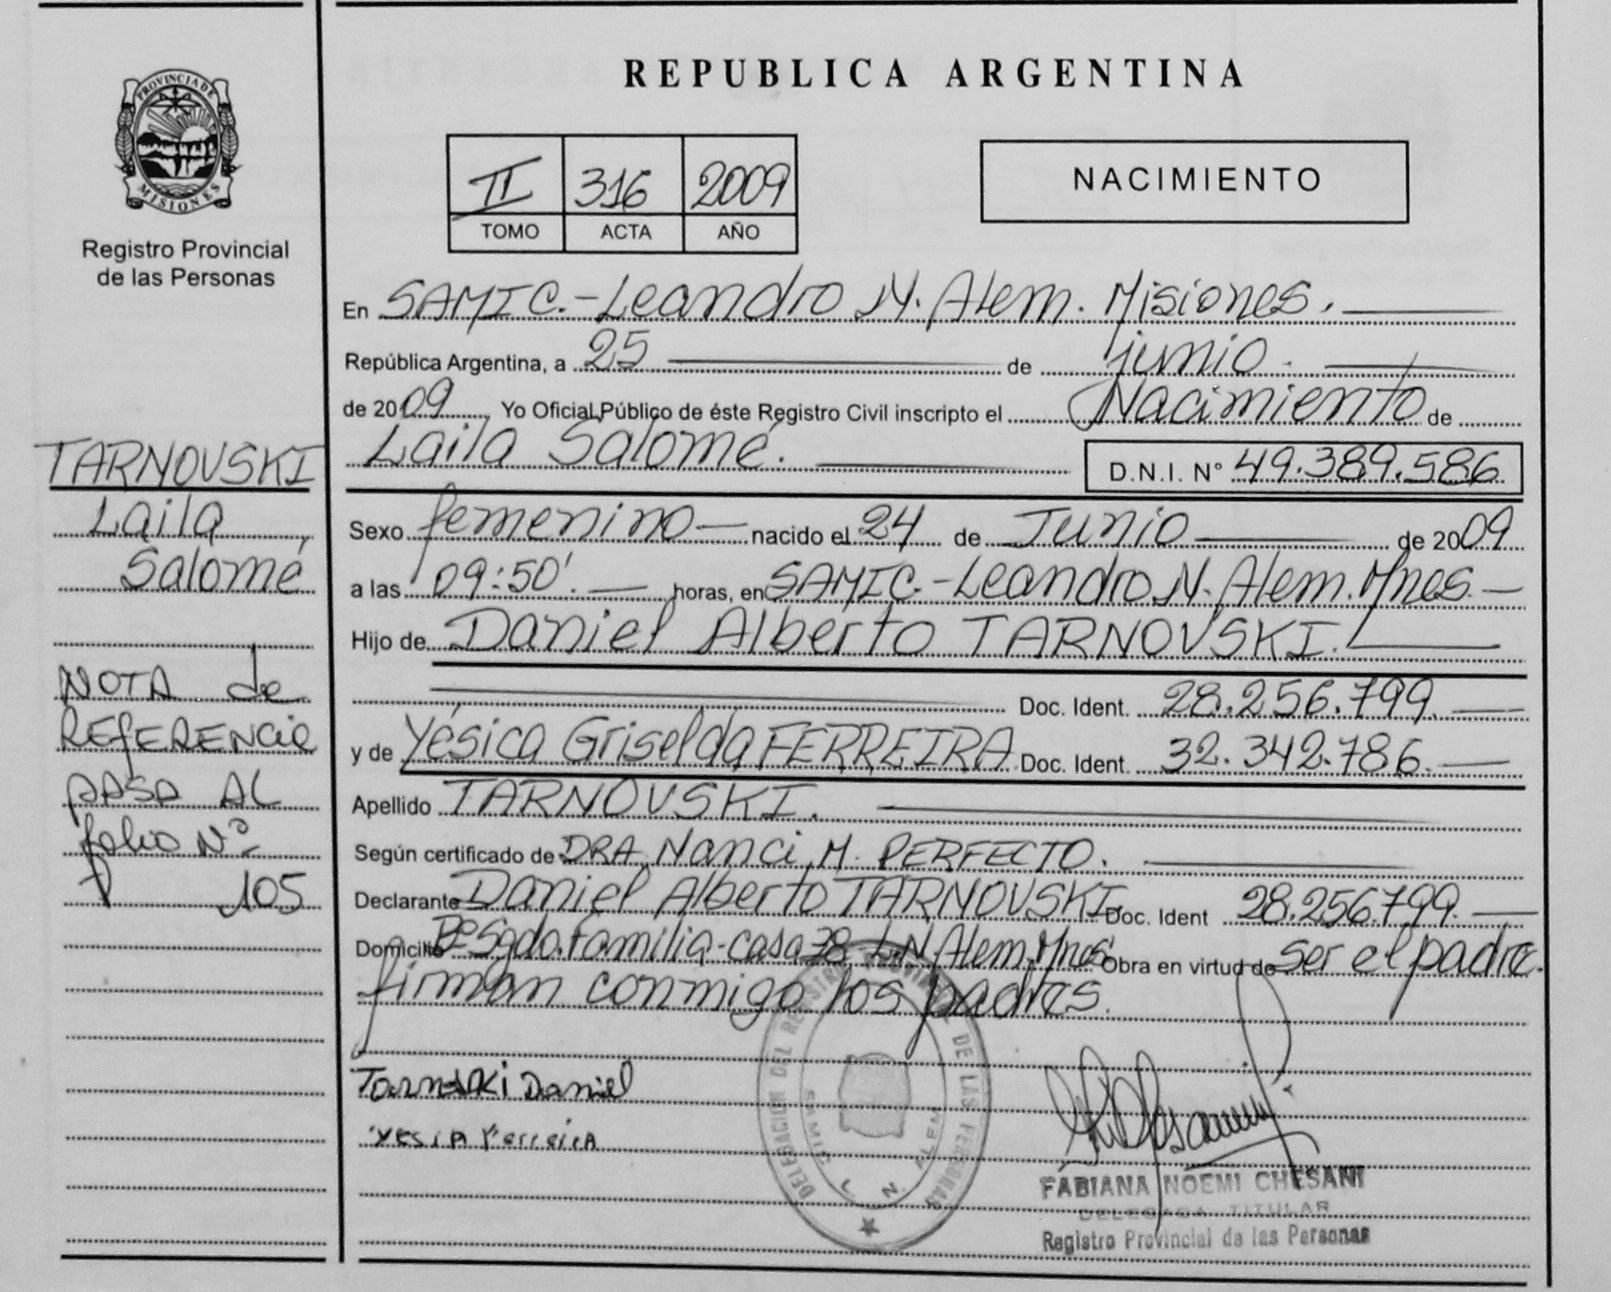 PROVINCIA DE
MISIONES
Registro Provincial
de las Personas
TARNOVSKI
Laila
Salomé
NOTA de
REFERENCIA
PASA AL
folio Nº
105
REPUBLICA ARGENTINA
II 316 2009
TOMO ACTA AÑO
NACIMIENTO
En SAMIC.-Leandro N. Alem. Misiones.
República Argentina, a 25 de junio.
de 2009 Yo Oficial Público de éste Registro Civil inscripto el Nacimiento de
Laila Salomé. D.N.I. Nº 49.389.586
Sexo femenino nacido el 24 de Junio de 2009
a las 09:50'. horas, en SAMIC.-Leandro N. Alem. Mnes.
Hijo de Daniel Alberto TARNOVSKI.
Doc. Ident. 28.256.799.
y de Yésica Griselda FERREIRA Doc. Ident. 32.342.786.
Apellido TARNOVSKI.
Según certificado de DRA. Nanci M. PERFECTO.
Declarante Daniel Alberto TARNOVSKI Doc. Ident 28.256.799.
Domicilio Bº Sgda. Familia-casa 38-L.N. Alem. Mnes. Obra en virtud de ser el padre.
firman conmigo los padres.
Daniel
Ferreira
DELEGACION DEL REGISTRO PROVINCIAL DE LAS PERSONAS
SAMIC L. N. ALEM
FABIANA NOEMI CHESANI
DELEGADA TITULAR
Registro Provincial de las Personas